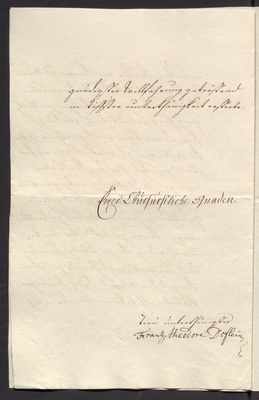 gnädigster Willfahrung getröstend
in tiefster unterthänigkeit ersterbe.
Euer Churfürstliche Gnaden
treu unterthänigster
Frantz Theodore Doflein